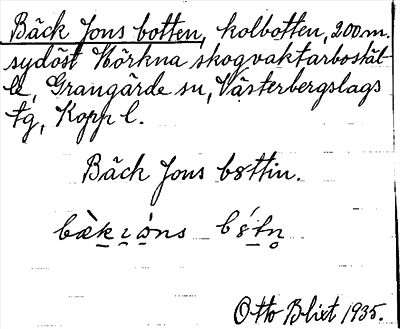 Bäck Jons botten, kolbotten, 200 m.
sydöst Hörkna skogvaktarboställ-
le, Grangärde sn, Västerbergslags
tg, Kopp l.
Bäck Jons b8ttin.
Otto Blixt 1935.